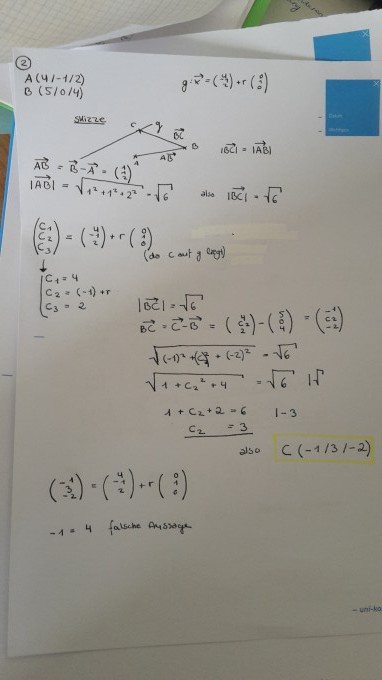 ②
A (4/-1/2)
B (5/0/4)
g: x⃗ = (4 -1 2) + r (0 1 0)
Skizze
C g
BC⃗
A AB⃗ B
|BC⃗| = |AB⃗|
AB⃗ = B⃗ - A⃗ = (1 1 2)
|AB⃗| = √1² + 1² + 2² = √6 also |BC⃗| = √6
(C1 C2 C3) = (4 -1 2) + r (0 1 0)
(da C auf g liegt)
↓
C1 = 4
C2 = (-1) + r
C3 = 2
|BC⃗| = √6
BC⃗ = C⃗ - B⃗ = (4 C2 2) - (5 0 4) = (-1 C2 -2)
√(-1)² + (C2)² + (-2)² = √6
√1 + C2² + 4 = √6 |√
1 + C2 + 2 = 6 |-3
C2 = 3
also C (-1/3/-2)
(-1 3 -2) = (4 -1 2) + r (0 1 0)
-1 = 4 falsche Aussage